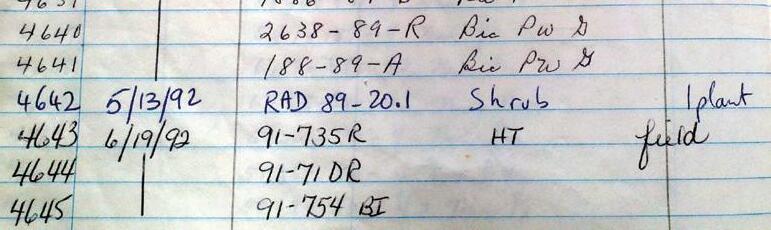 4640 2638-89-R Bic Pw G
4641 188-89-A Bic Pw G
4642 5/13/92 RAD 89-20.1 Shrub 1 plant
4643 6/19/92 91-735R HT field
4644 91-71DR
4645 91-754 BI